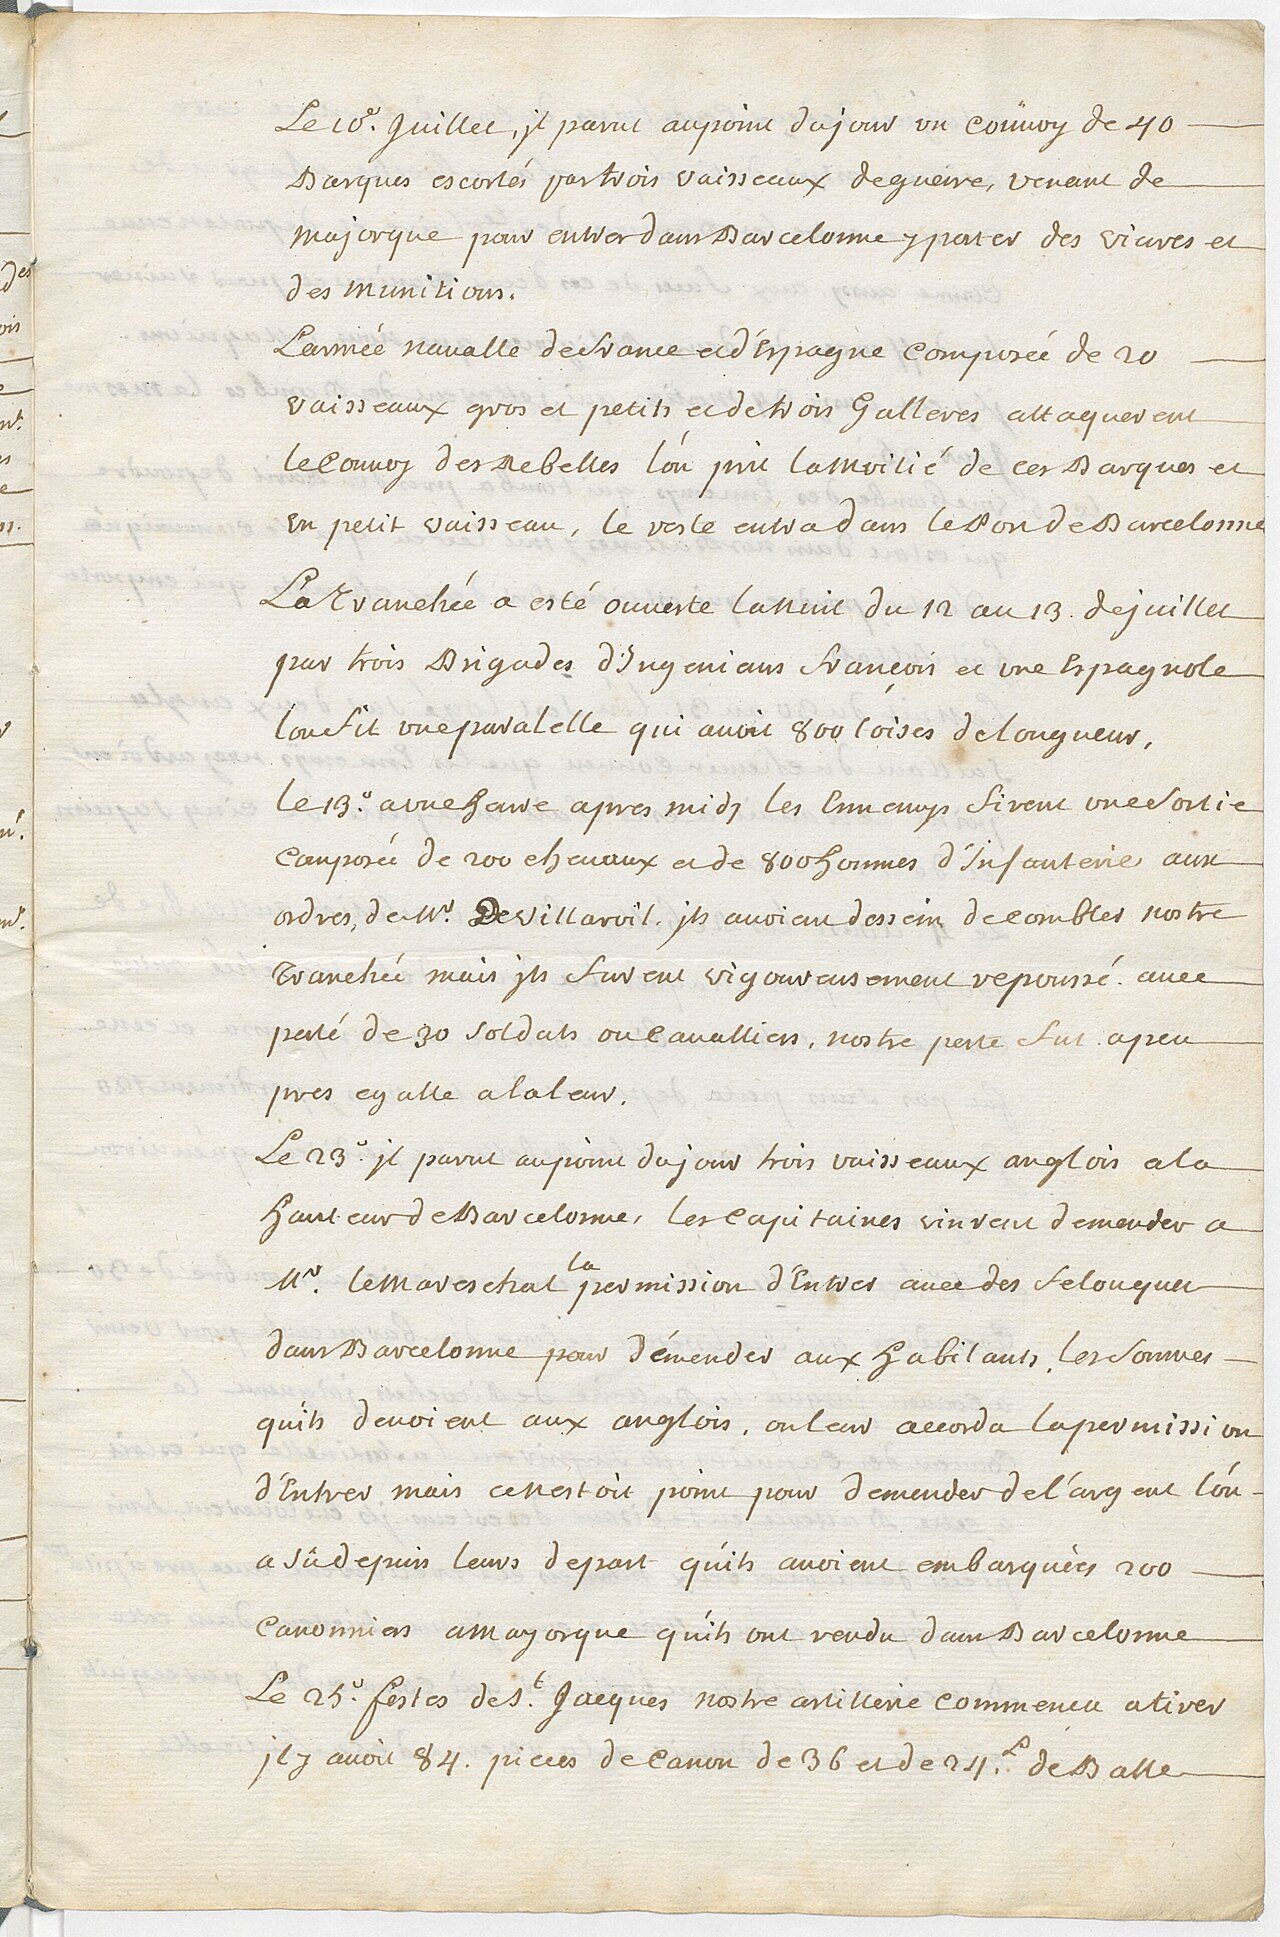 Le 10e. Juillet, jl parut aupoint dujour un Couuoy de 40
Barques escortés par trois vaisseaux deguerre, venant de
Majorque pour entrer dans Barcelonne y porter des viures et
des Munitions.
L'armée naualle defrance et d'Espagne Composée de 20
vaisseaux gros et petits et de trois Galleres attaquerent
le Conuoy des Rebelles l'on prit la Moitié de ces Barques et
un petit vaisseau, le reste entra dans le Port de Barcelonne
La Tranchée a esté ouuerte la Nuit du 12 au 13. de juillet
par trois Brigades d'Ingenieurs françois et une Espagnole
lon fit une paralelle qui auoit 800 toises de longueur,
le 13e. a une heure apres midy les Ennemys firent une Sortie
Composée de 200 cheuaux et de 800 hommes d'Infanterie aux
ordres, de Mr. De Villaroil. jls auoient dessein de combler nostre
Tranchée mais jls furent vigoureusement repoussé. auec
perté de 30 soldats ou Caualliers, nostre perte fut apeu
pres egalle a la leur.
Le 23e. jl parut aupoint dujour trois vaisseaux anglois a la
hauteur de Barcelonne, les Capitaines vinrent demender a
Mr. le Mareschal la permission d'Entrer auec des felouques
dans Barcelonne pour démender aux habitants, les Sommes
qu'ils deuoient aux anglois, on leur accorda la permission
d'Entrer mais ce nestoit point pour demender de l'argent l'on
a sû depuis leurs depart qu'ils auoient embarquées 200
Canonniers a Mayorque qu'ils ont rendu dans Barcelonne
Le 25e. festes de St. Jacques nostre artillerie commenca a tirer
jl y auoit 84. pieces de Canon de 36 et de 24.L de Balle